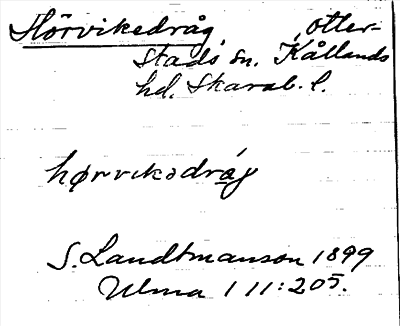 Hörvikedråg, Otter-
Stads sn. Kållands
hd. Skarab. l.
hørvikədråg
S. Landtmanson 1899
Ulma 111:205.